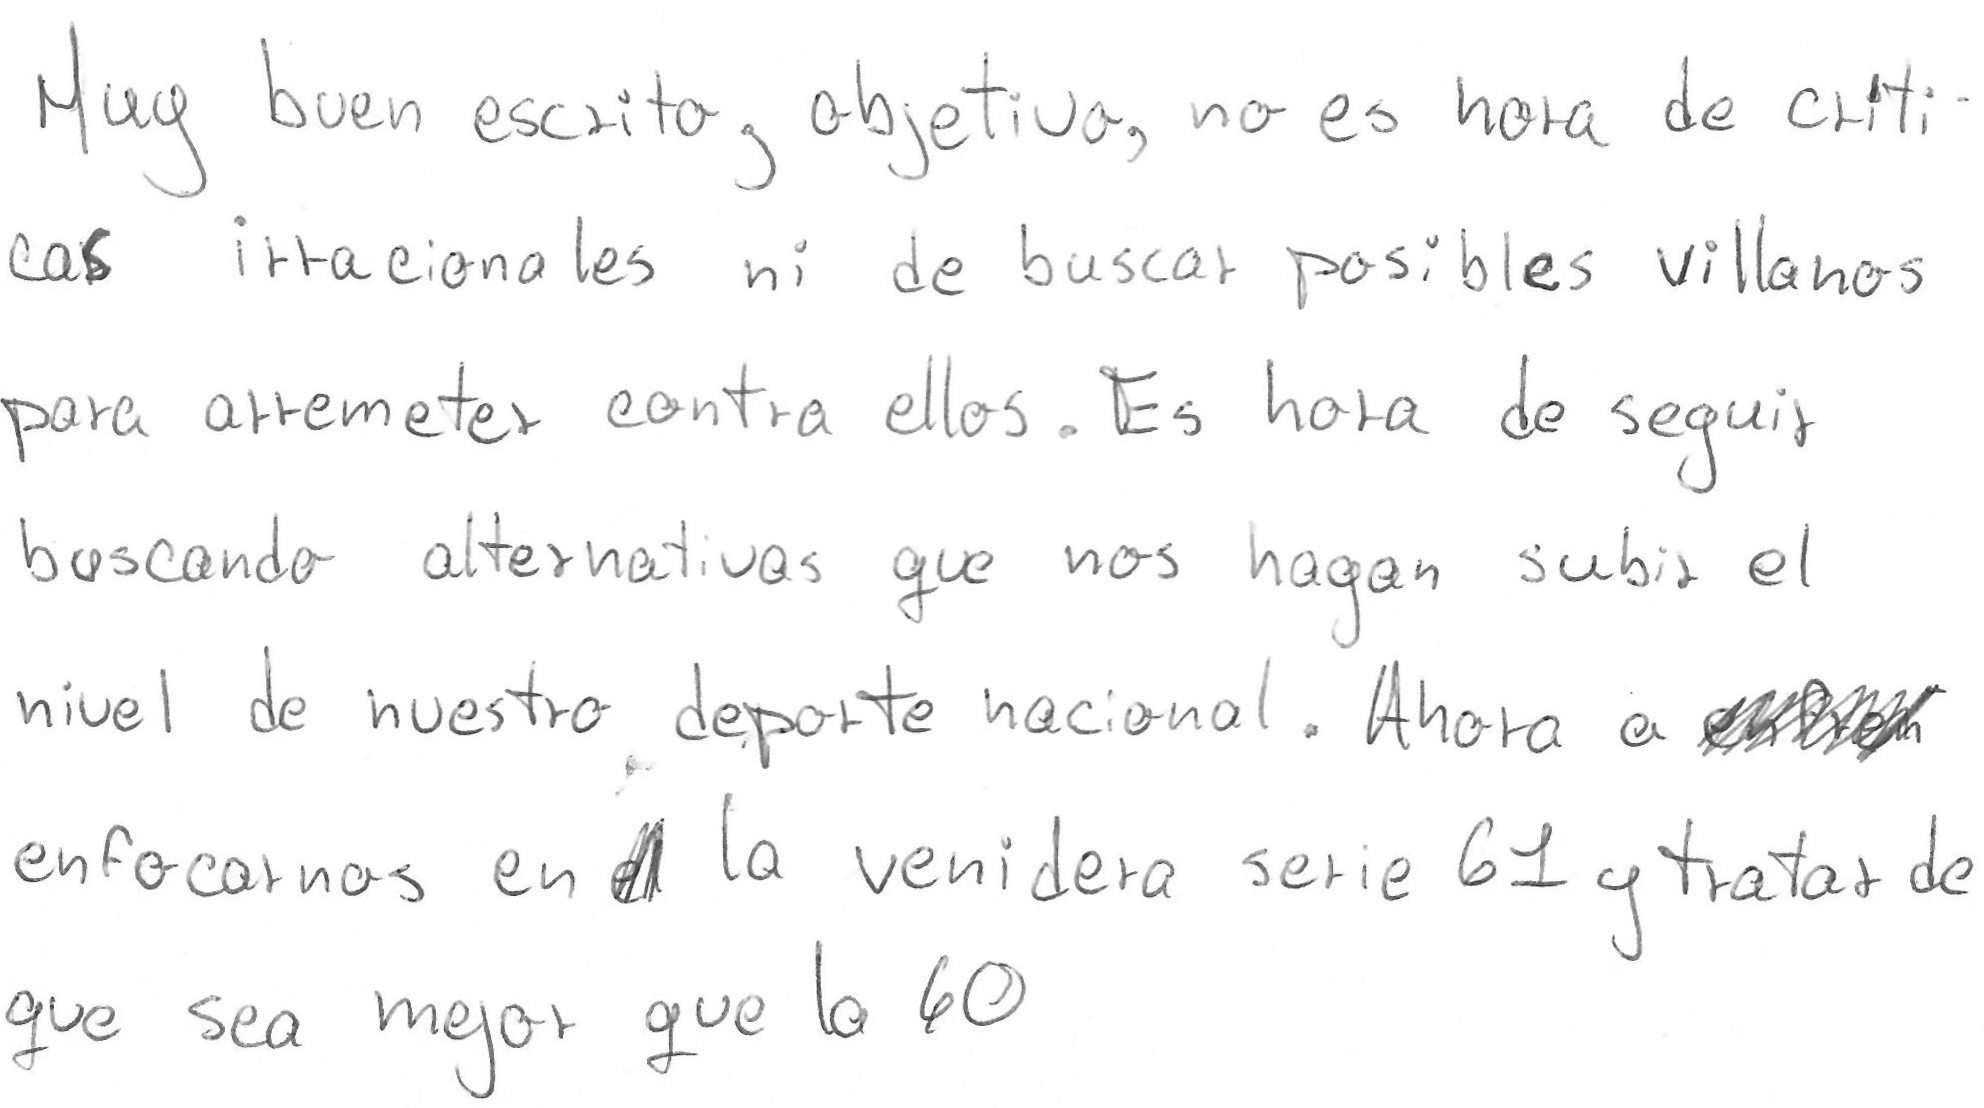 Muy buen escrito, objetivo, no es hora de criti-
cas irracionales ni de buscar posibles villanos
para arremeter contra ellos. Es hora de seguir
buscando alternativas que nos hagan subir el
nivel de nuestro deporte nacional. Ahora a
enfocarnos en la venidera serie 61 y tratar de
que sea mejor que la 60